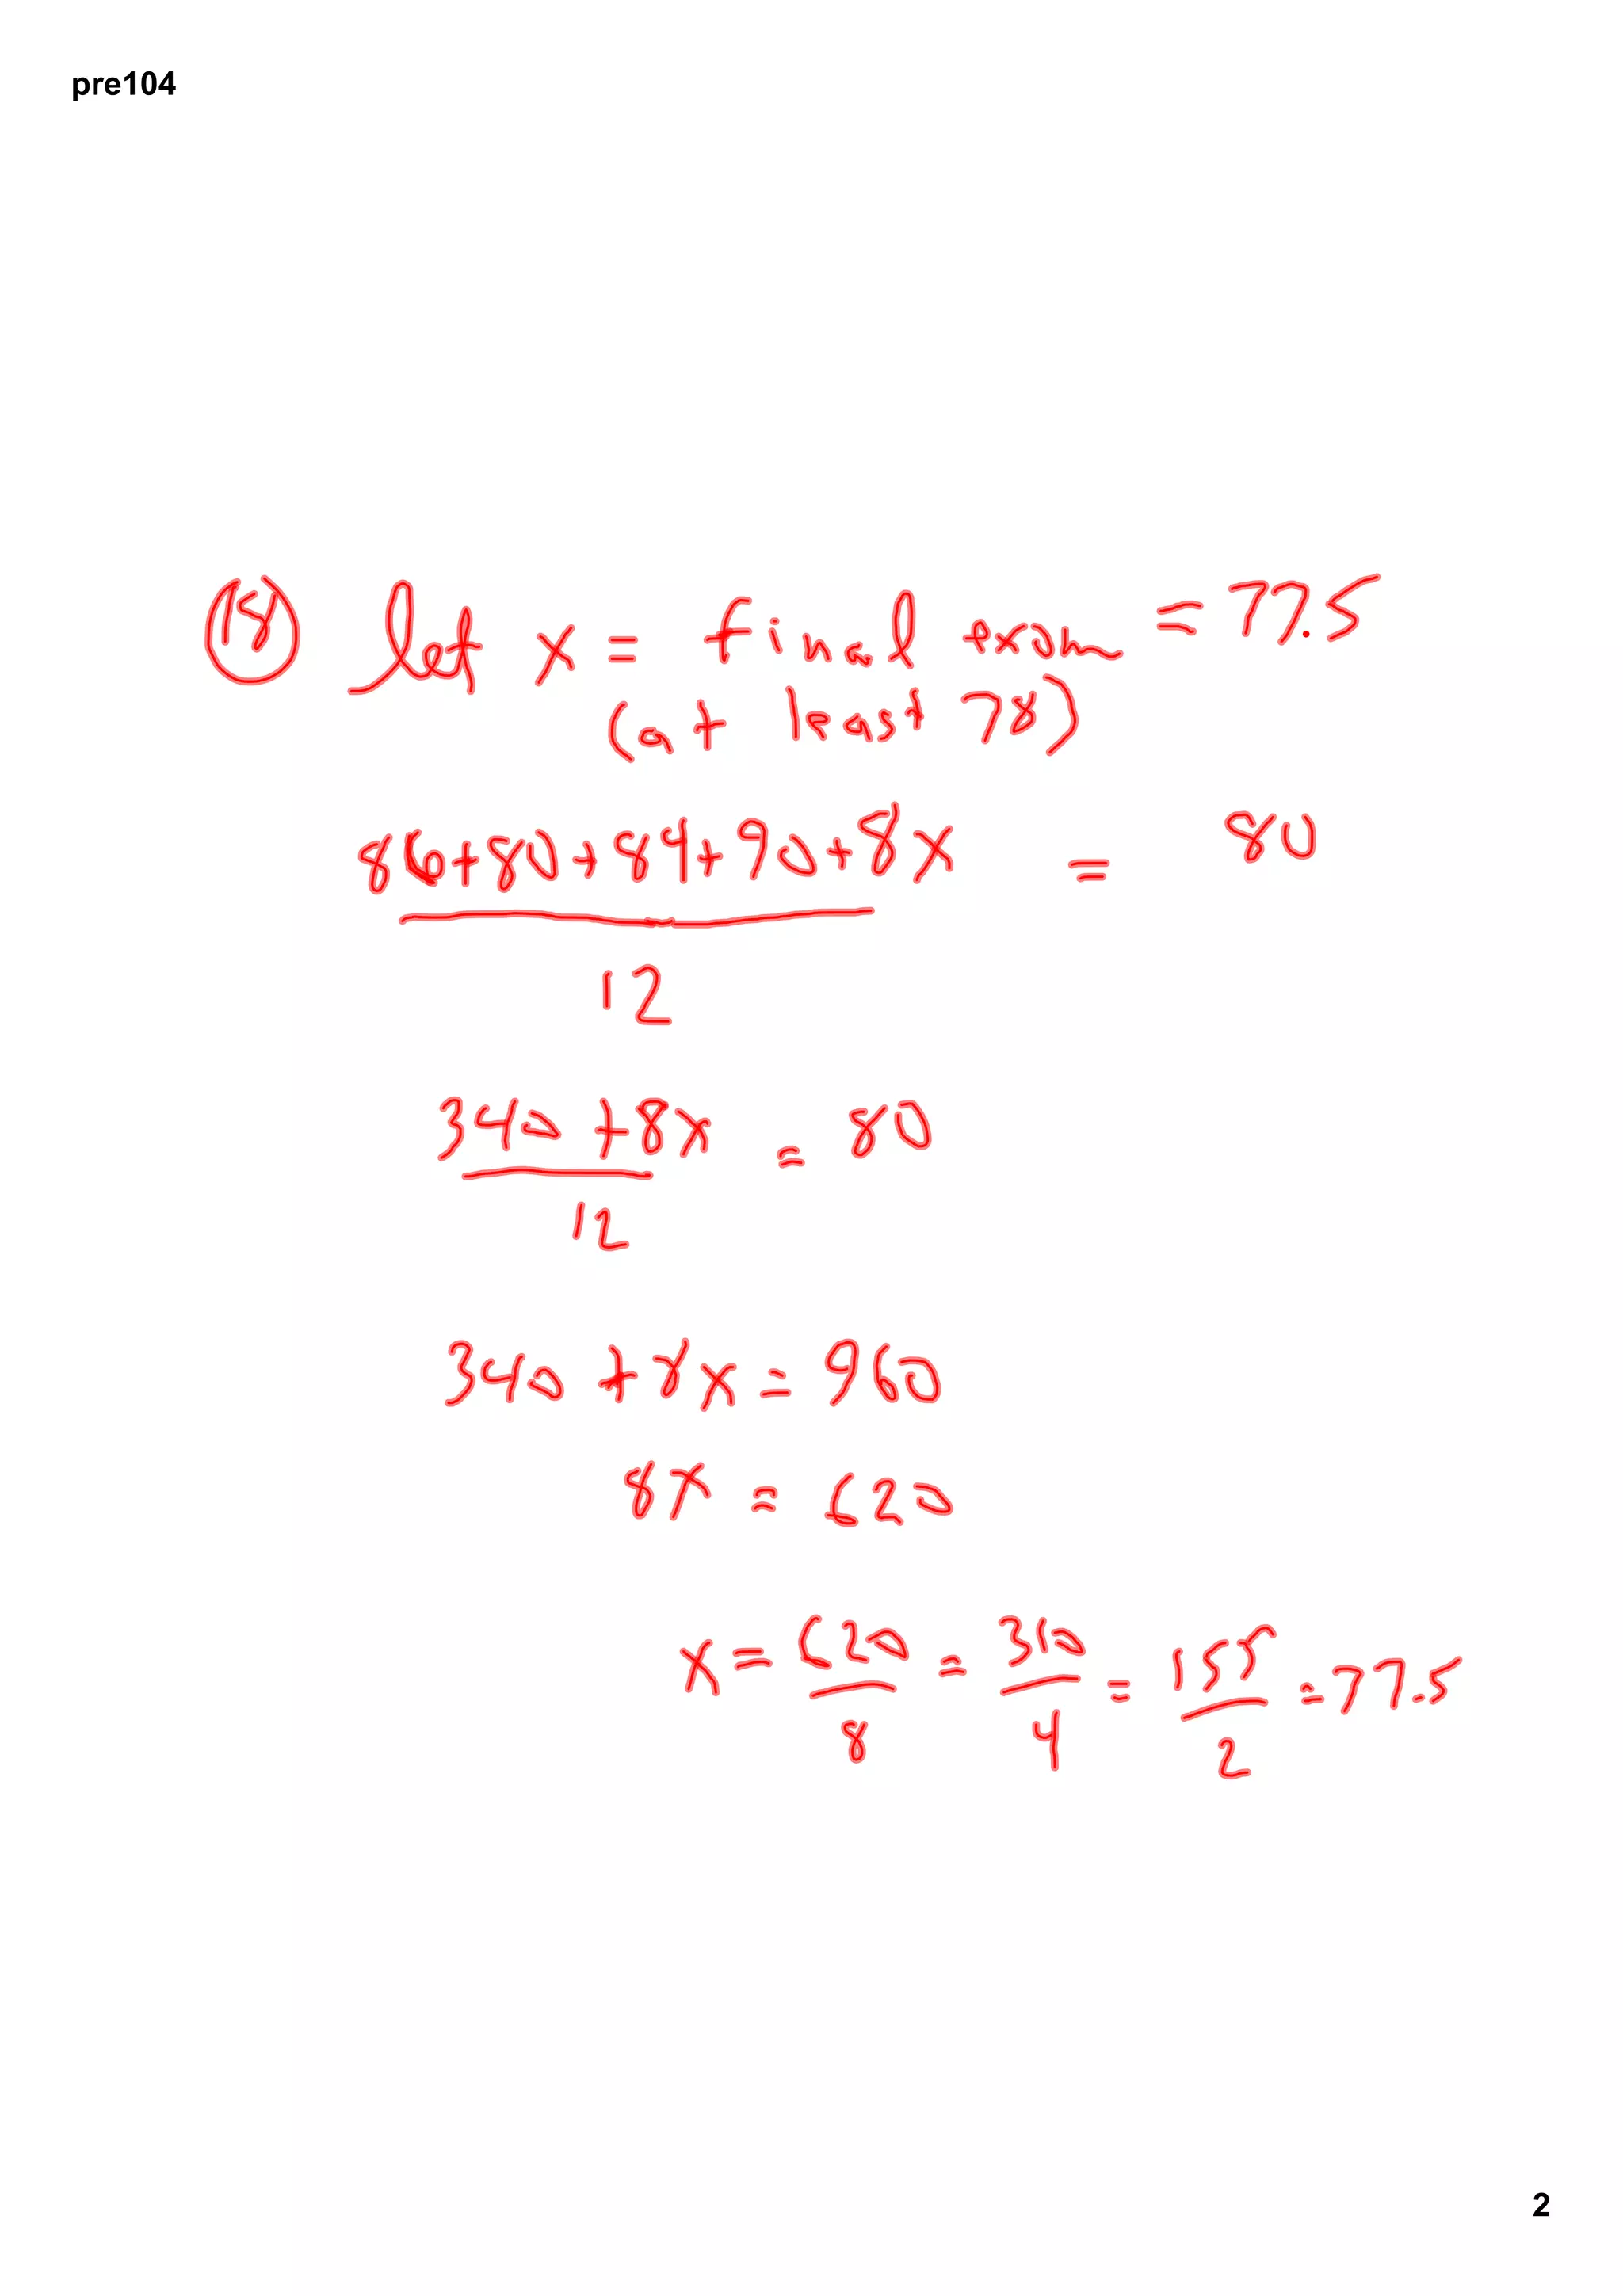 pre104
(18) let x = final exam = 77.5
(at least 78)
86+80+84+90+8x = 80
12
340 + 8x = 80
12
340 + 8x = 960
8x = 620
x = 620 = 310 = 155 = 77.5
8 4 2
2